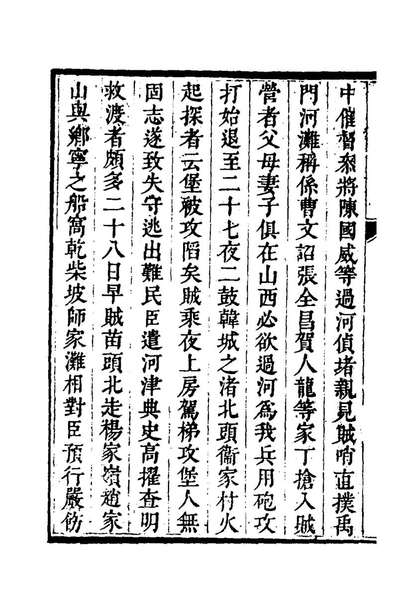 中催督叅將陳國威等過河偵堵親見賊哨直撲禹
門河灘稱係曹文詔張全昌賀人龍等家丁搶入賊
營者父母妻子俱在山西必欲過河爲我兵用砲攻
打始退至二十七夜二鼓韓城之渚北頭衞家村火
起探者云堡被攻陷矣賊乘夜上房駕梯攻堡人無
固志遂致失守逃出難民臣遣河津典史高擢查明
救渡者頗多二十八日早賊苗頭北走楊家嶺趙家
山與鄉寧之船窩乾柴坡師家灘相對臣預行嚴飭